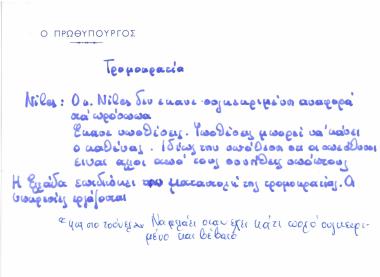 Ο ΠΡΩΘΥΠΟΥΡΓΟΣ
Τρομοκρατία
Niles: Ο κ. Niles δεν έκανε συγκεκριμένη αναφορά
σε πρόσωπα
Έκανε υποθέσεις. Υποθέσεις μπορεί να κάνει
ο καθένας. Ιδίως την υπόθεση ότι οι υπεύθυνοι
είναι άλλοι από τους συνήθεις υπόπτους
Η Ελλάδα επιδιώκει την καταστολή της τρομοκρατίας. Οι
υπηρεσίες εργάζονται
Να μιλάει όταν έχει κάτι πολύ συγκεκρι-
μένο και βέβαιο